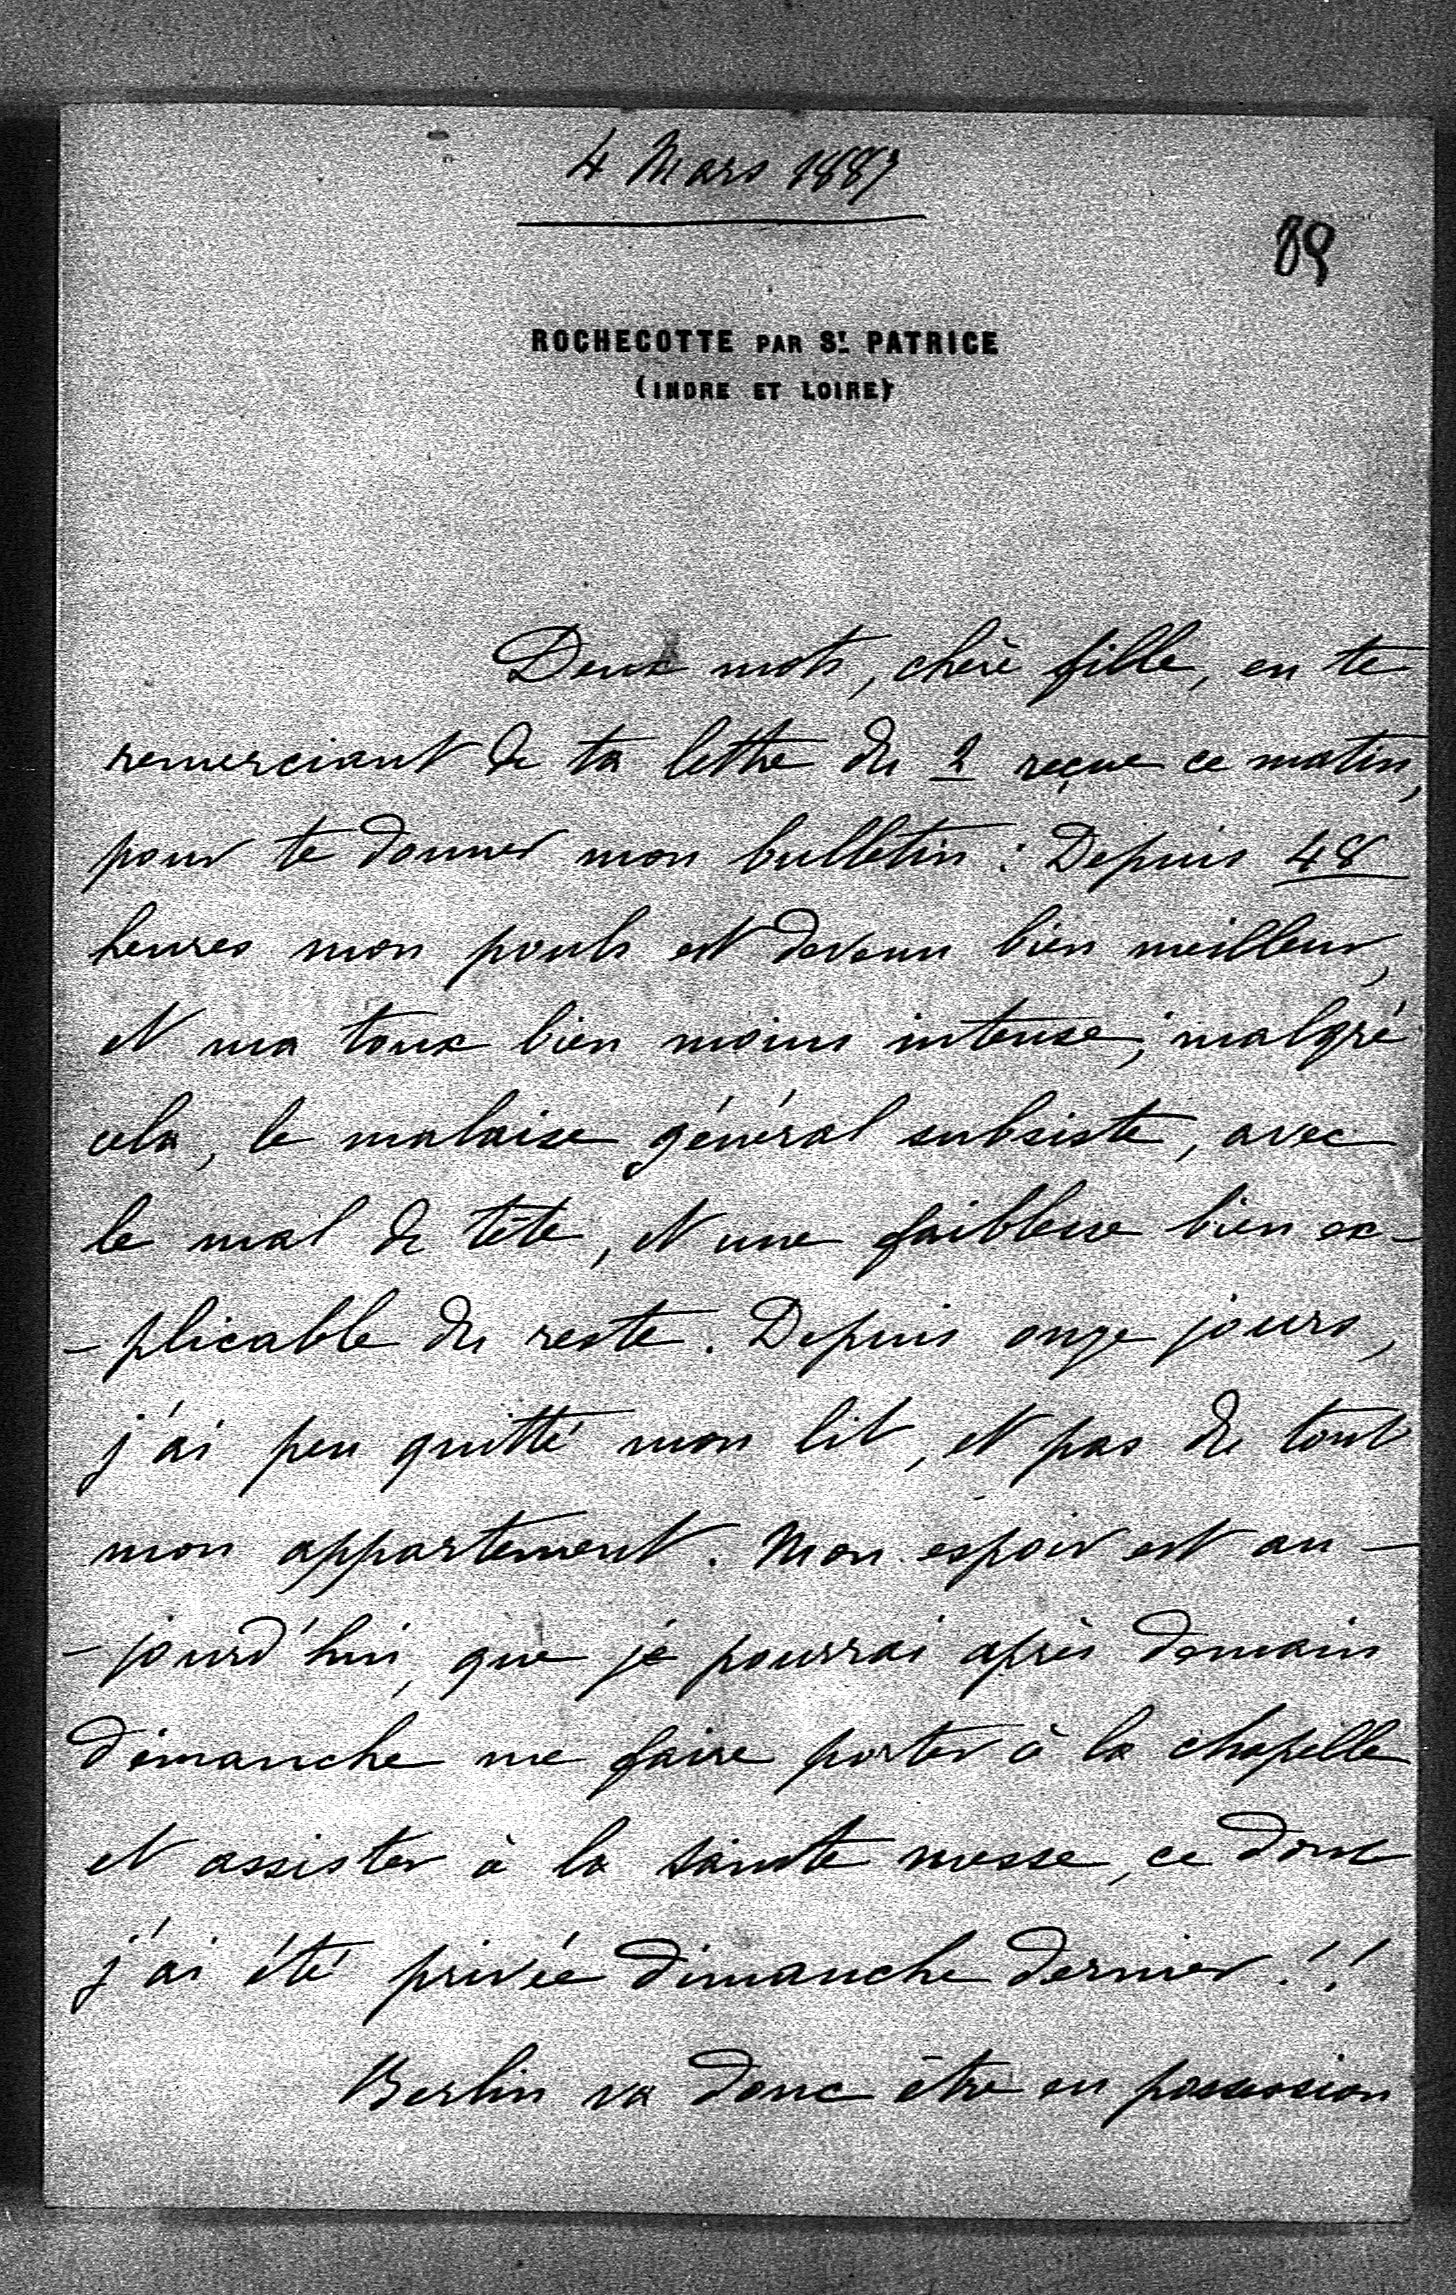 4 Mars 1887
89
ROCHECOTTE PAR ST. PATRICE
(INDRE ET LOIRE)
Deux mots, chère fille, en te
remerciant de ta lettre du 2 reçue ce matin,
pour te donner mon bulletin : Depuis 48
heures mon pouls est devenu bien meilleur,
et ma toux bien moins intense; malgré
cela, le malaise général subsiste, avec
le mal de tête, et une faiblesse bien ex-
-plicable du reste. Depuis onze jours,
j'ai peu quitté mon lit, et pas du tout
mon appartement. Mon espoir est au-
-jourd'hui, que je pourrai après demain
dimanche me faire porter à la chapelle
et assister à la sainte messe, ce dont
j'ai été privée dimanche dernier!!
Berlin va donc être en possession